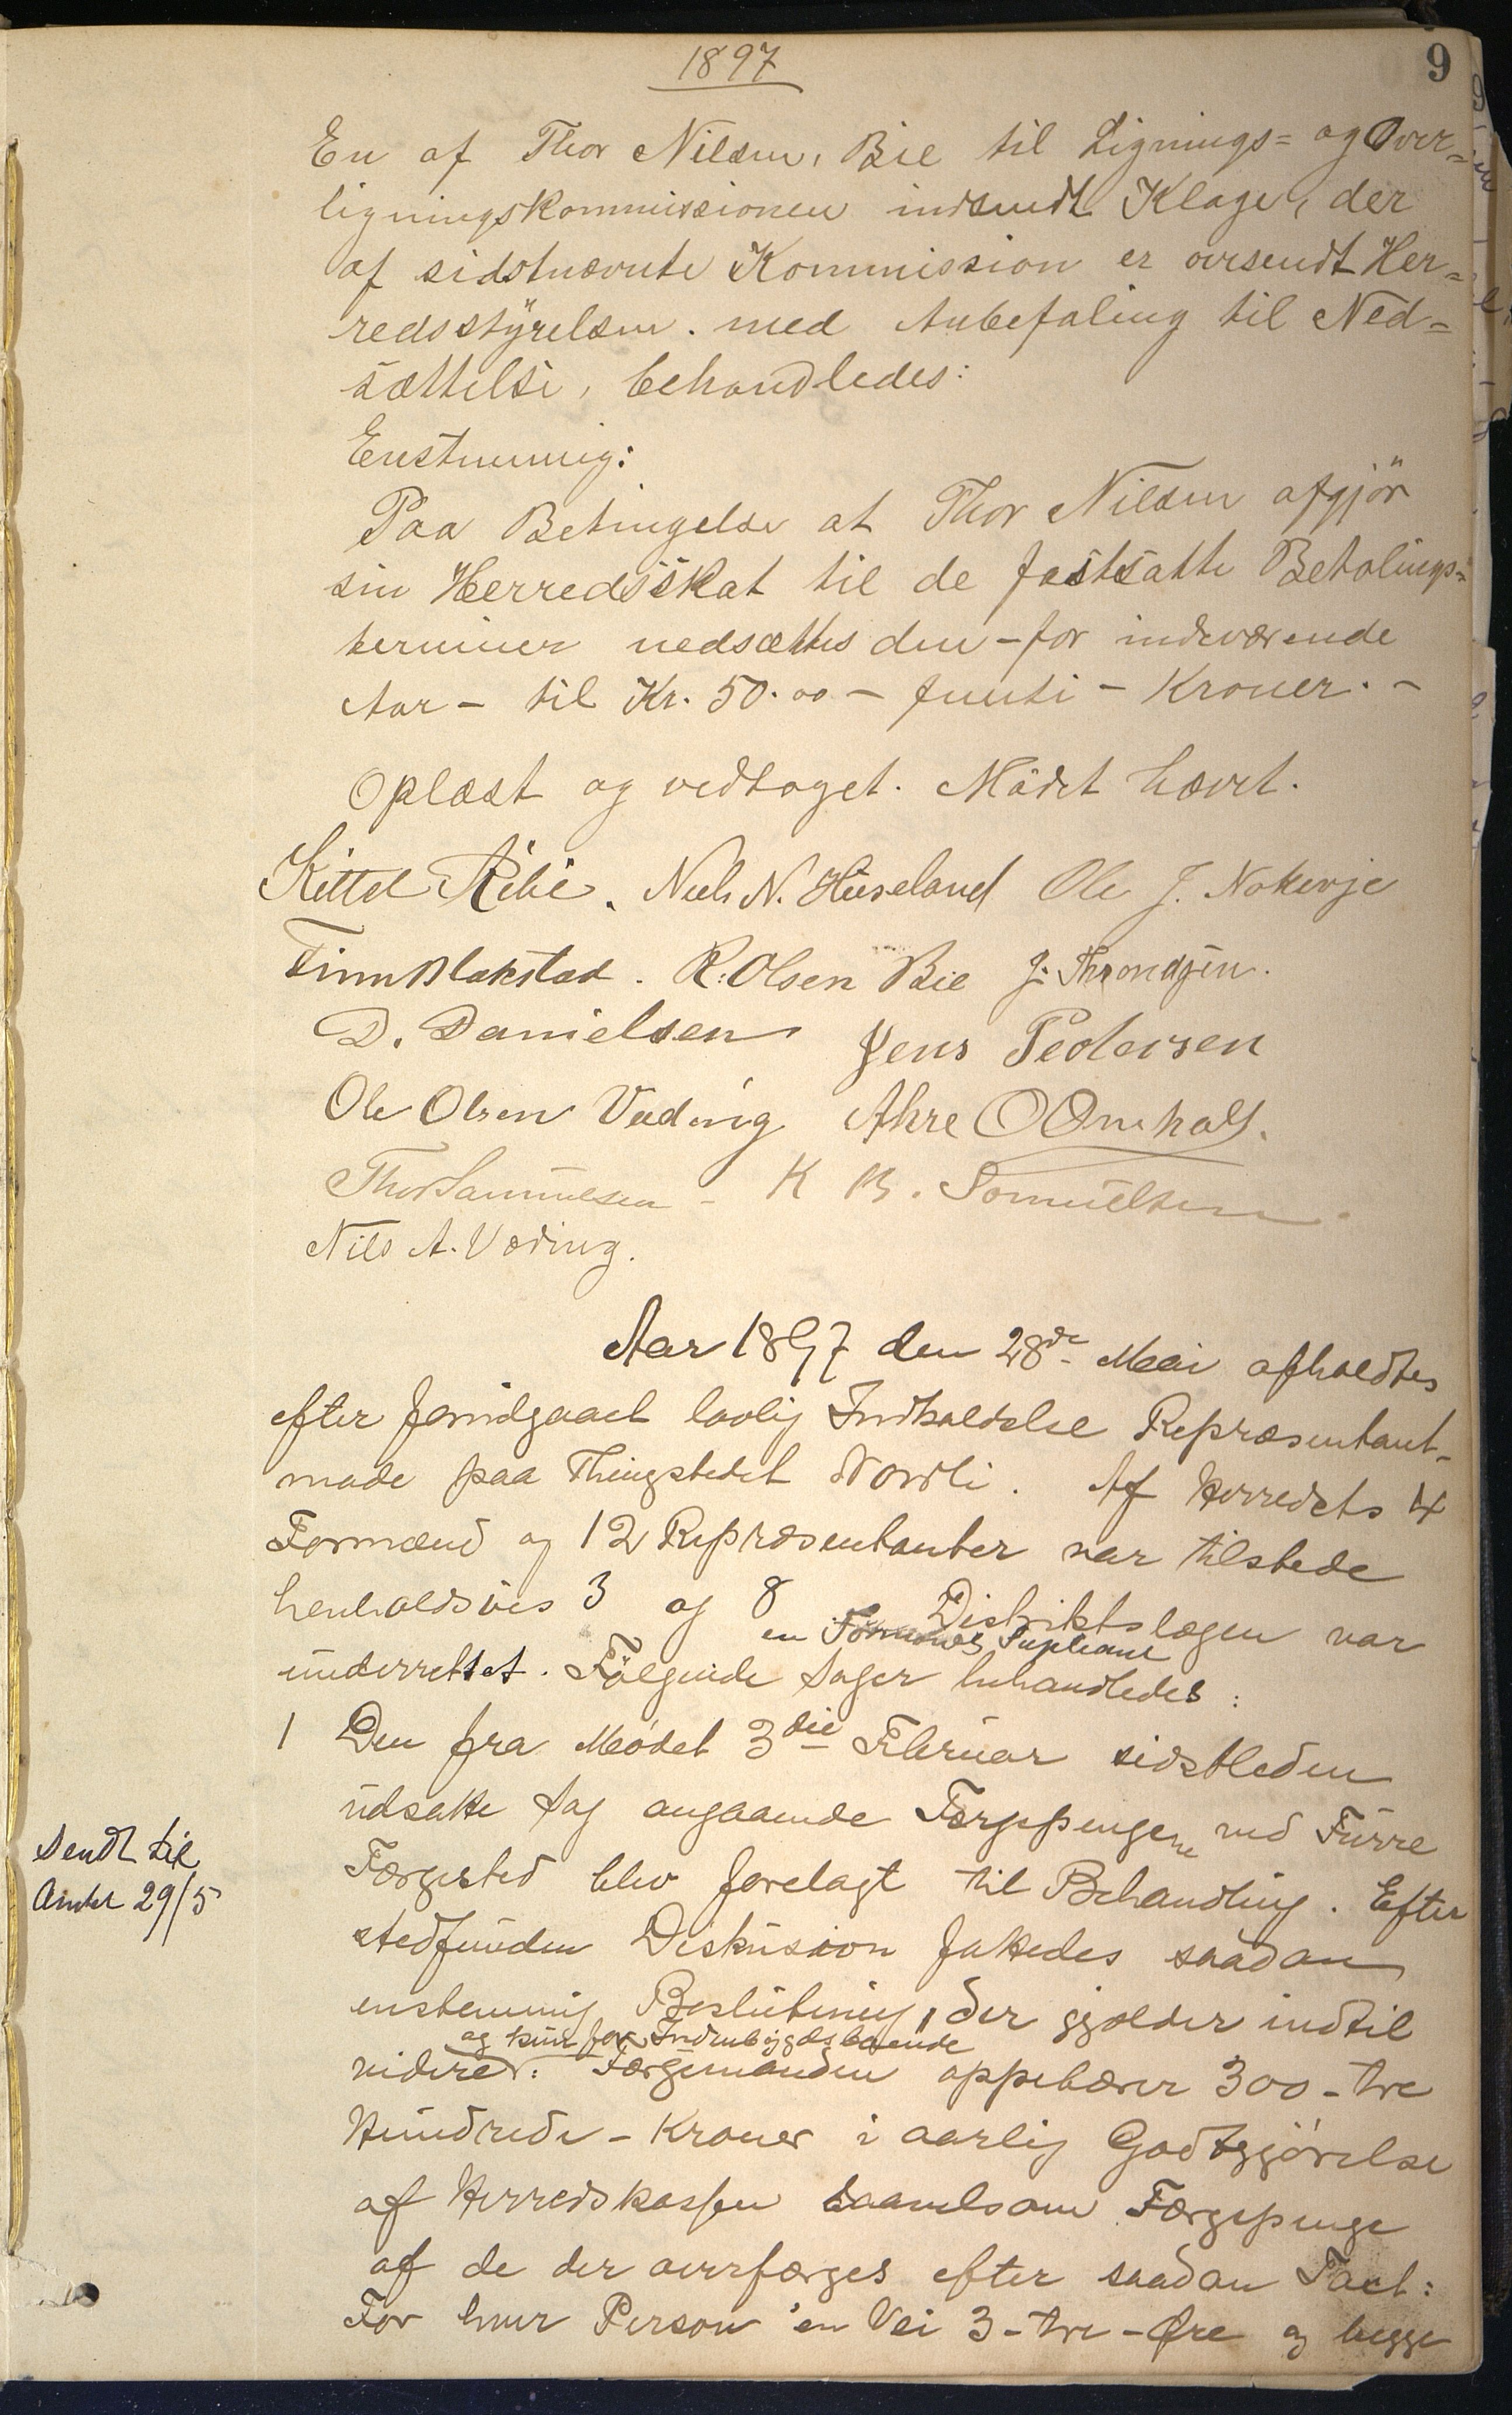 1897
9
En af Thor Nilsen, Bie til Lignings= og Over=
ligningskommissionen indsendt Klage, der
af sidstnævnte Kommission er oversendt Her=
redsstyrelsen. med Anbefaling til Ned=
sættelse, behandledes:
Enstemmig:
Paa Betingelse at Thor Nilsen afgjör
sin Herredsskat til de fastsatte Betalings=
terminer nedsættes den - for indeværende
Aar - til Kr. 50.00 - femti - Kroner. -
Oplæst og vedtaget. Mödet hævet.
Kittel Ribe. Niels N. Huseland Ole J. Nokevje
Finn Blakstad. R. Olsen Bie J. Throndsen.
D. Danielsen Jens Pedersen
Ole Olsen Væding Ahre O Omholt.
Thor Samuelsen - K B. Somuelsen.
Nils A. Væding.
Aar 1897 den 28de Mai afholdtes
efter foregaaet lovlig Indkaldelse Repræsentant-
møde paa Thingstedet Nordli. Af Herredets 4
Formænd og 12 Repræsentanter var tilstede
henholdsvis 3 og 8 Distriktslægen var
en Formands Supleant
underrettet. Følgende Sager behandledes:
1 Den fra Mødet 3die Februar sidstleden
udsatte Sag angaaende Færgepengene ved Furre
Sendt til
Færgested blev forelagt til Behandling. Efter
Amtet 29/5
stedfunden Diskusion fattedes saadan
enstemmig Beslutning, der gjælder indtil
og kun for Indenbygdsboende
videre: Færgemanden oppebærer 300 - tre
Hundrede - Kroner i aarlig Godtgjörelse
af Herredskassen saavelsom Færgepenge
af de der overfærges efter saadan Taxt:
For hver Person en Vei 3 - tre - Øre og begge